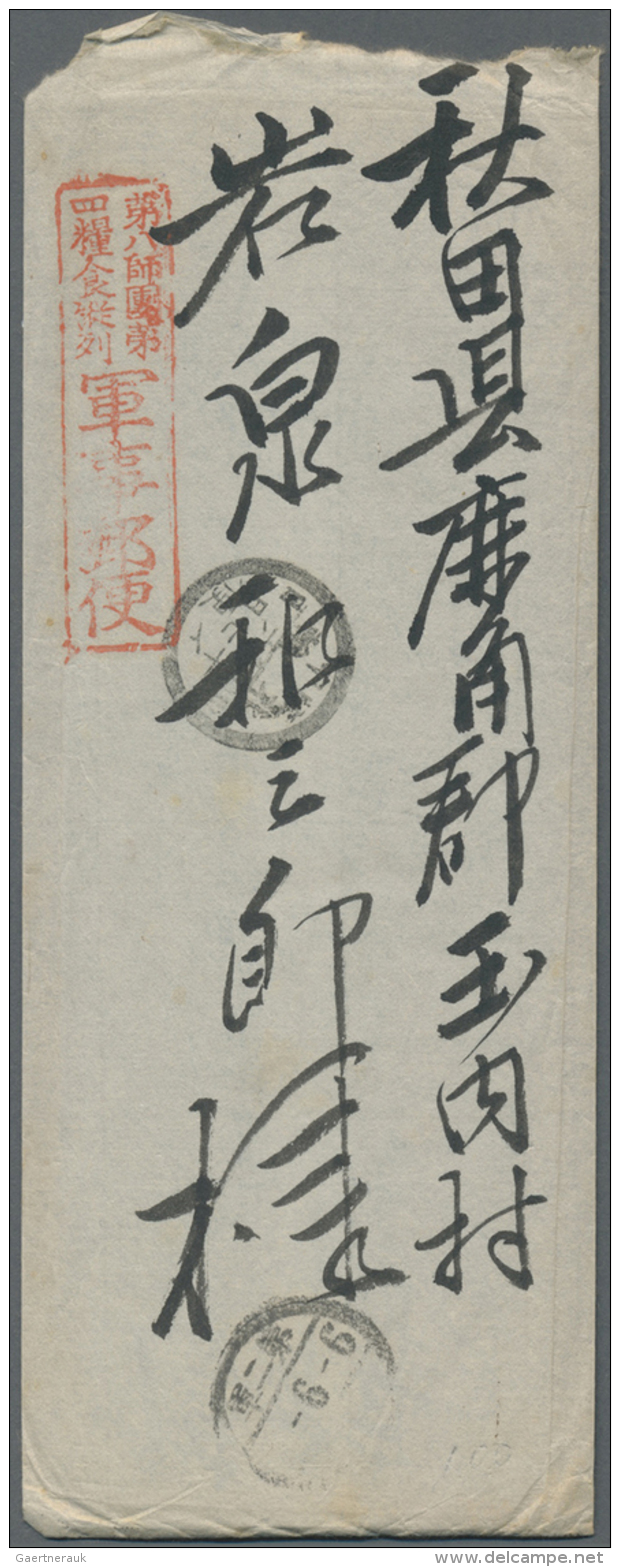 秋田県鹿角郡玉内村
岩泉和三郎様
第八師團第
四糧食縱列
軍事郵便
6-6-
Gaertnerauk
© delcampe.net